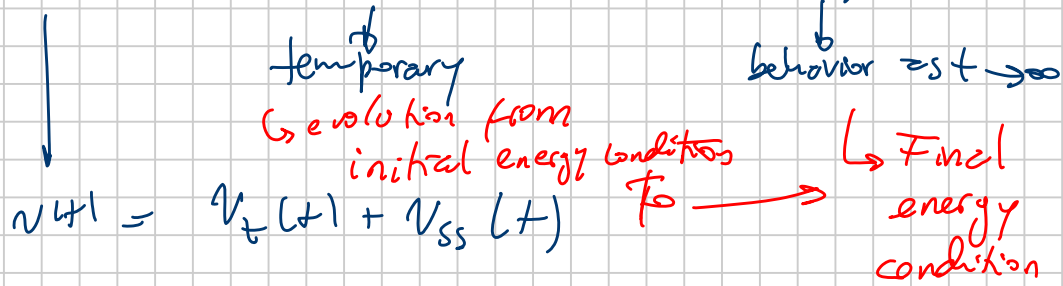 temporary
behavior as t → ∞
↳ evolution from
initial energy conditions
To →
↳ Final
energy
condition
v(t) = V_t (t) + V_ss (t)